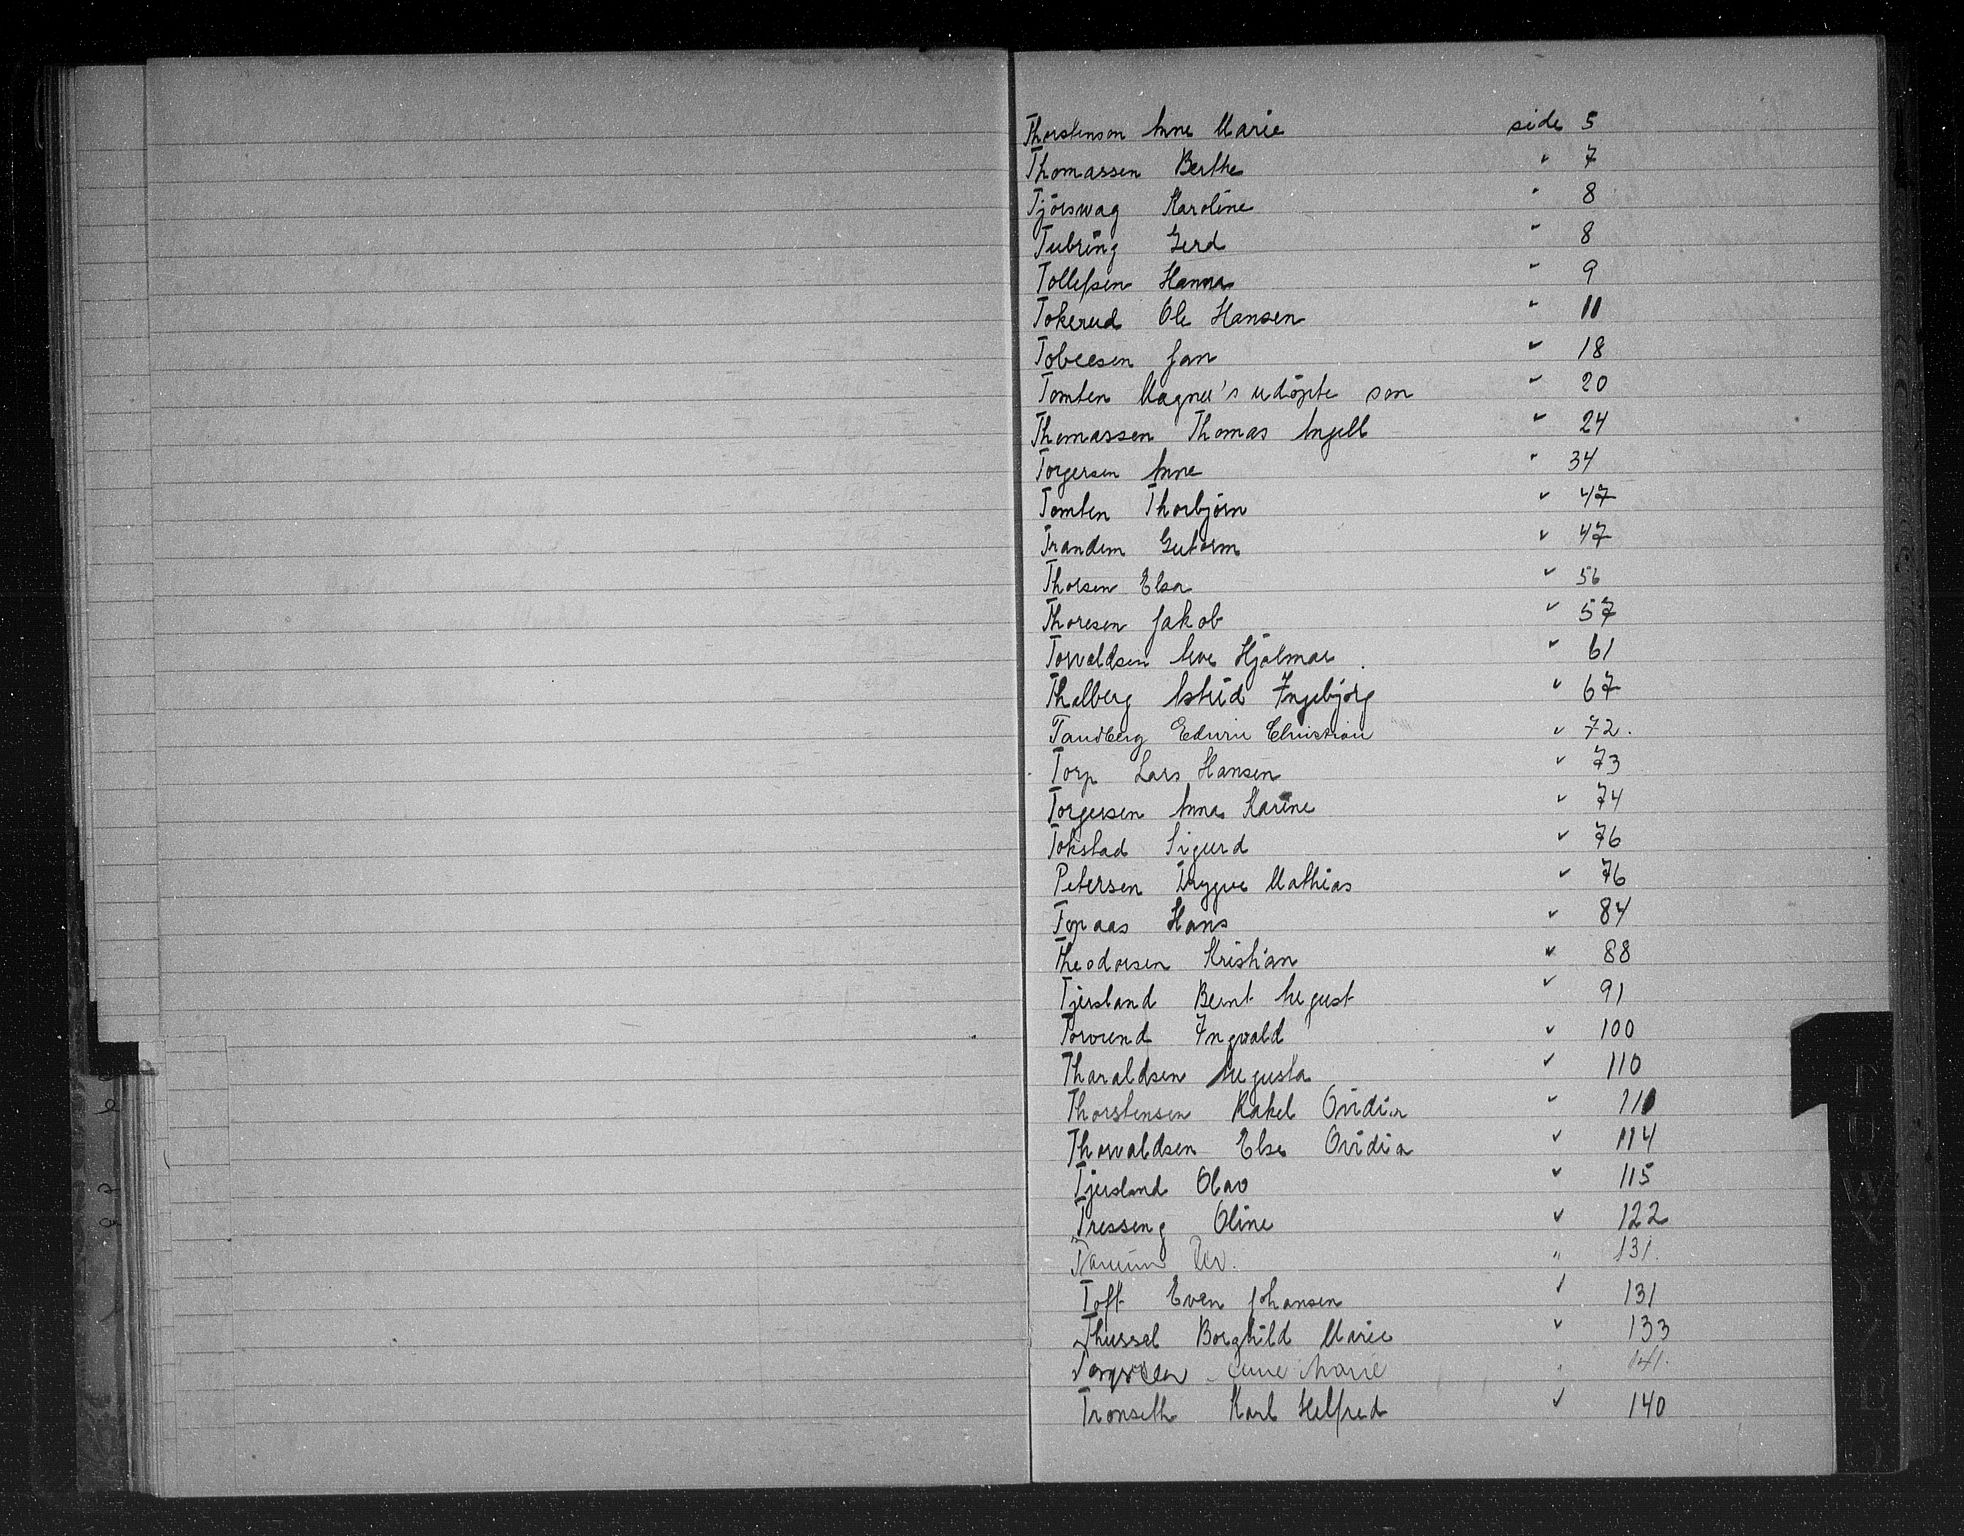 Thorstenson Anne Marie side 5
Thomassen Berthe " 7
Tjörswag Karoline " 8
Tubring Gerd " 8
Tollefsen Hanna " 9
Tokerud Ole Hansen " 11
Tobiesen Jan " 18
Tomten Magne's udöpte søn " 20
Thomassen Thomas Angell " 24
Torgersen Anne " 34
Tomten Thorbjörn " 47
Trandem Gutorm " 47
Thorsen Elsa " 56
Thoresen Jakob " 57
Torvaldsen Arve Hjalmar " 61
Thalberg Astrid Ingebjörg " 67
Tandberg Edwin Christian " 72.
Torp Lars Hansen " 73
Torgersen Anna Karine " 74
Tokstad Sigurd " 76
Petersen Trygve Mathias " 76
Topaas Hans " 84
Theodorsen Kristian " 88
Tjersland Bernt August " 91
Torvund Ingvald " 100
Tharaldsen Augusta " 110
Thorstensen Rakel Ovidia " 111
Thorvaldsen Else Ovidia " 114
Tjersland Olav " 115
Tresseng Oline " 122
" 131.
Toft Even Johansen " 131
Thussel Borghild Marie " 133
Anne Marie " 141.
Tronseth Karl Helfred " 140
T
U
W
X
Y